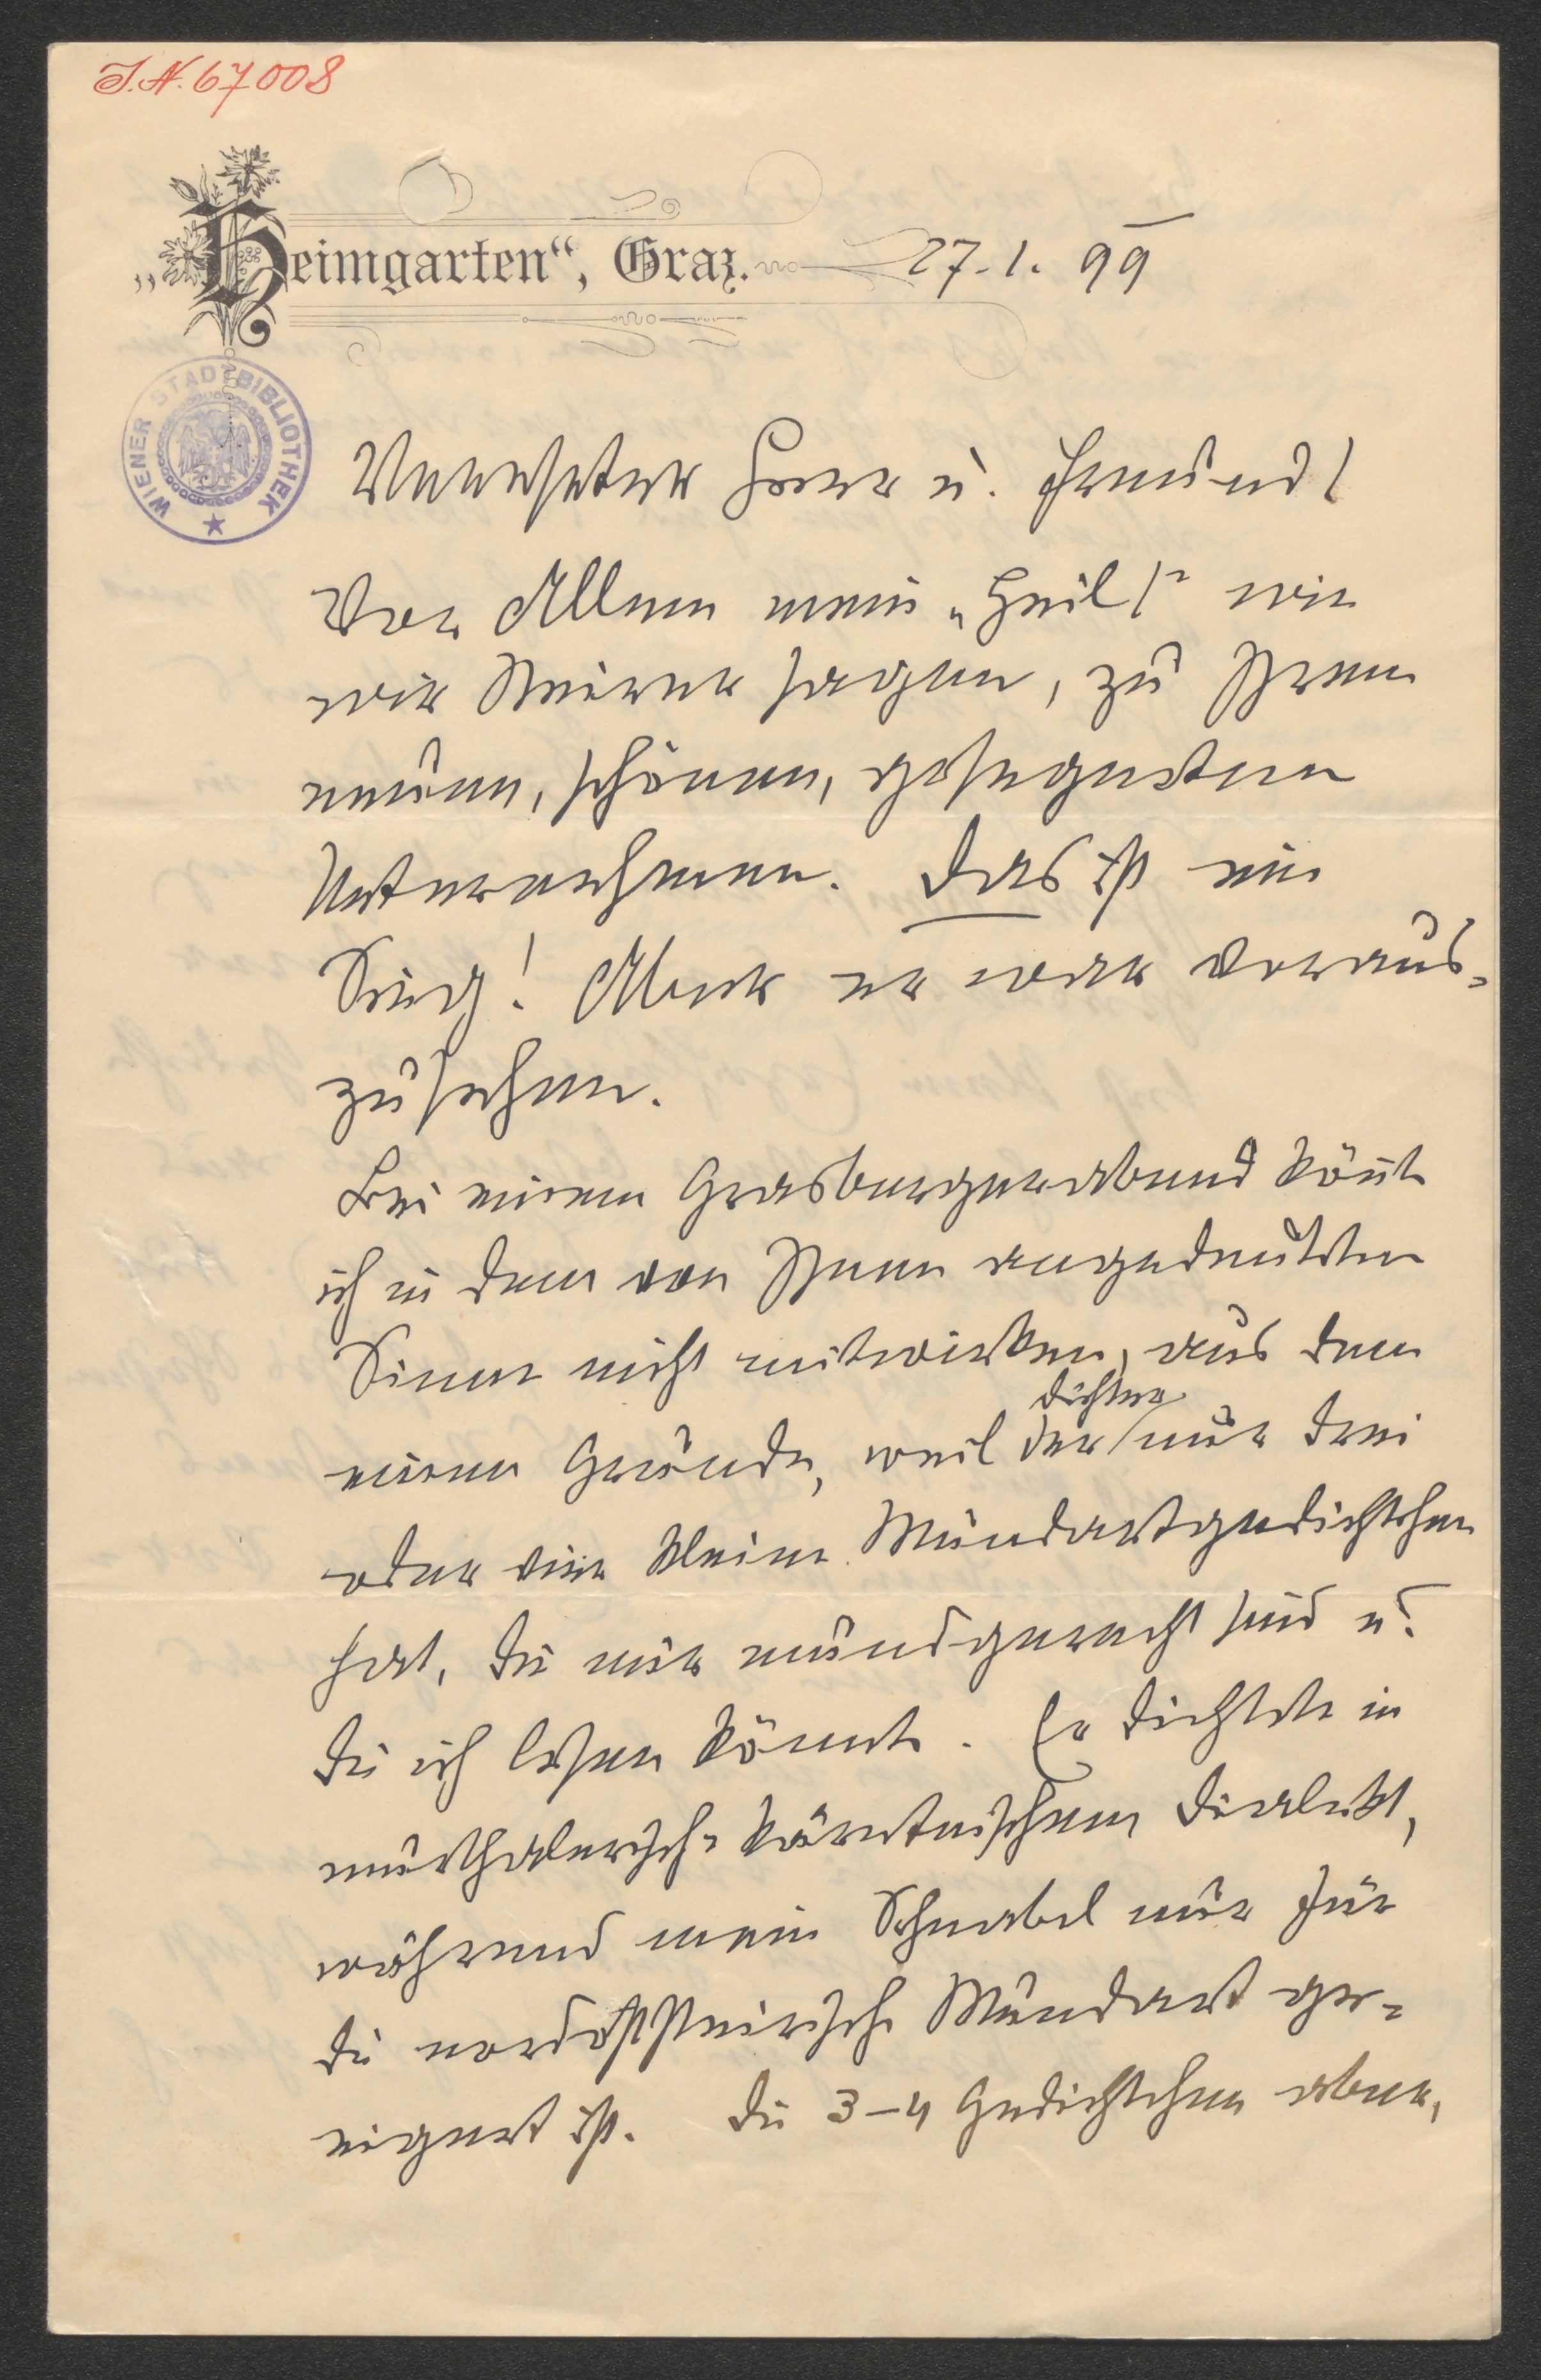 I.N. 67008
„Heimgarten“, Graz. 27. 1. 99
WIENER STADTBIBLIOTHEK
Verehrter Herr u. Freund!
Vor Allem mein „Heil!“ wie
wir Steirer sagen, zu Ihrem
neuen, schönen, gesegneten
Unternehmen. Das ist ein
Sieg! Aber er war voraus-
zusehen.
Bei einem Grasbergerabend könnt
ich in dem von Ihnen angedeuteten
Sinne nicht mitwirken, aus dem
Dichter
einen Grunde, weil der nur drei
oder vier kleine Mundartgedichtchen
hat, die mir mundgerecht sind u.
die ich lesen könnte. Er dichtete in
murthalerisch-kärntnischem Dialekt,
während mein Schnabel nur für
die nordoststeirische Mundart ge-
eignet ist. Die 3–4 Gedichtchen aber,